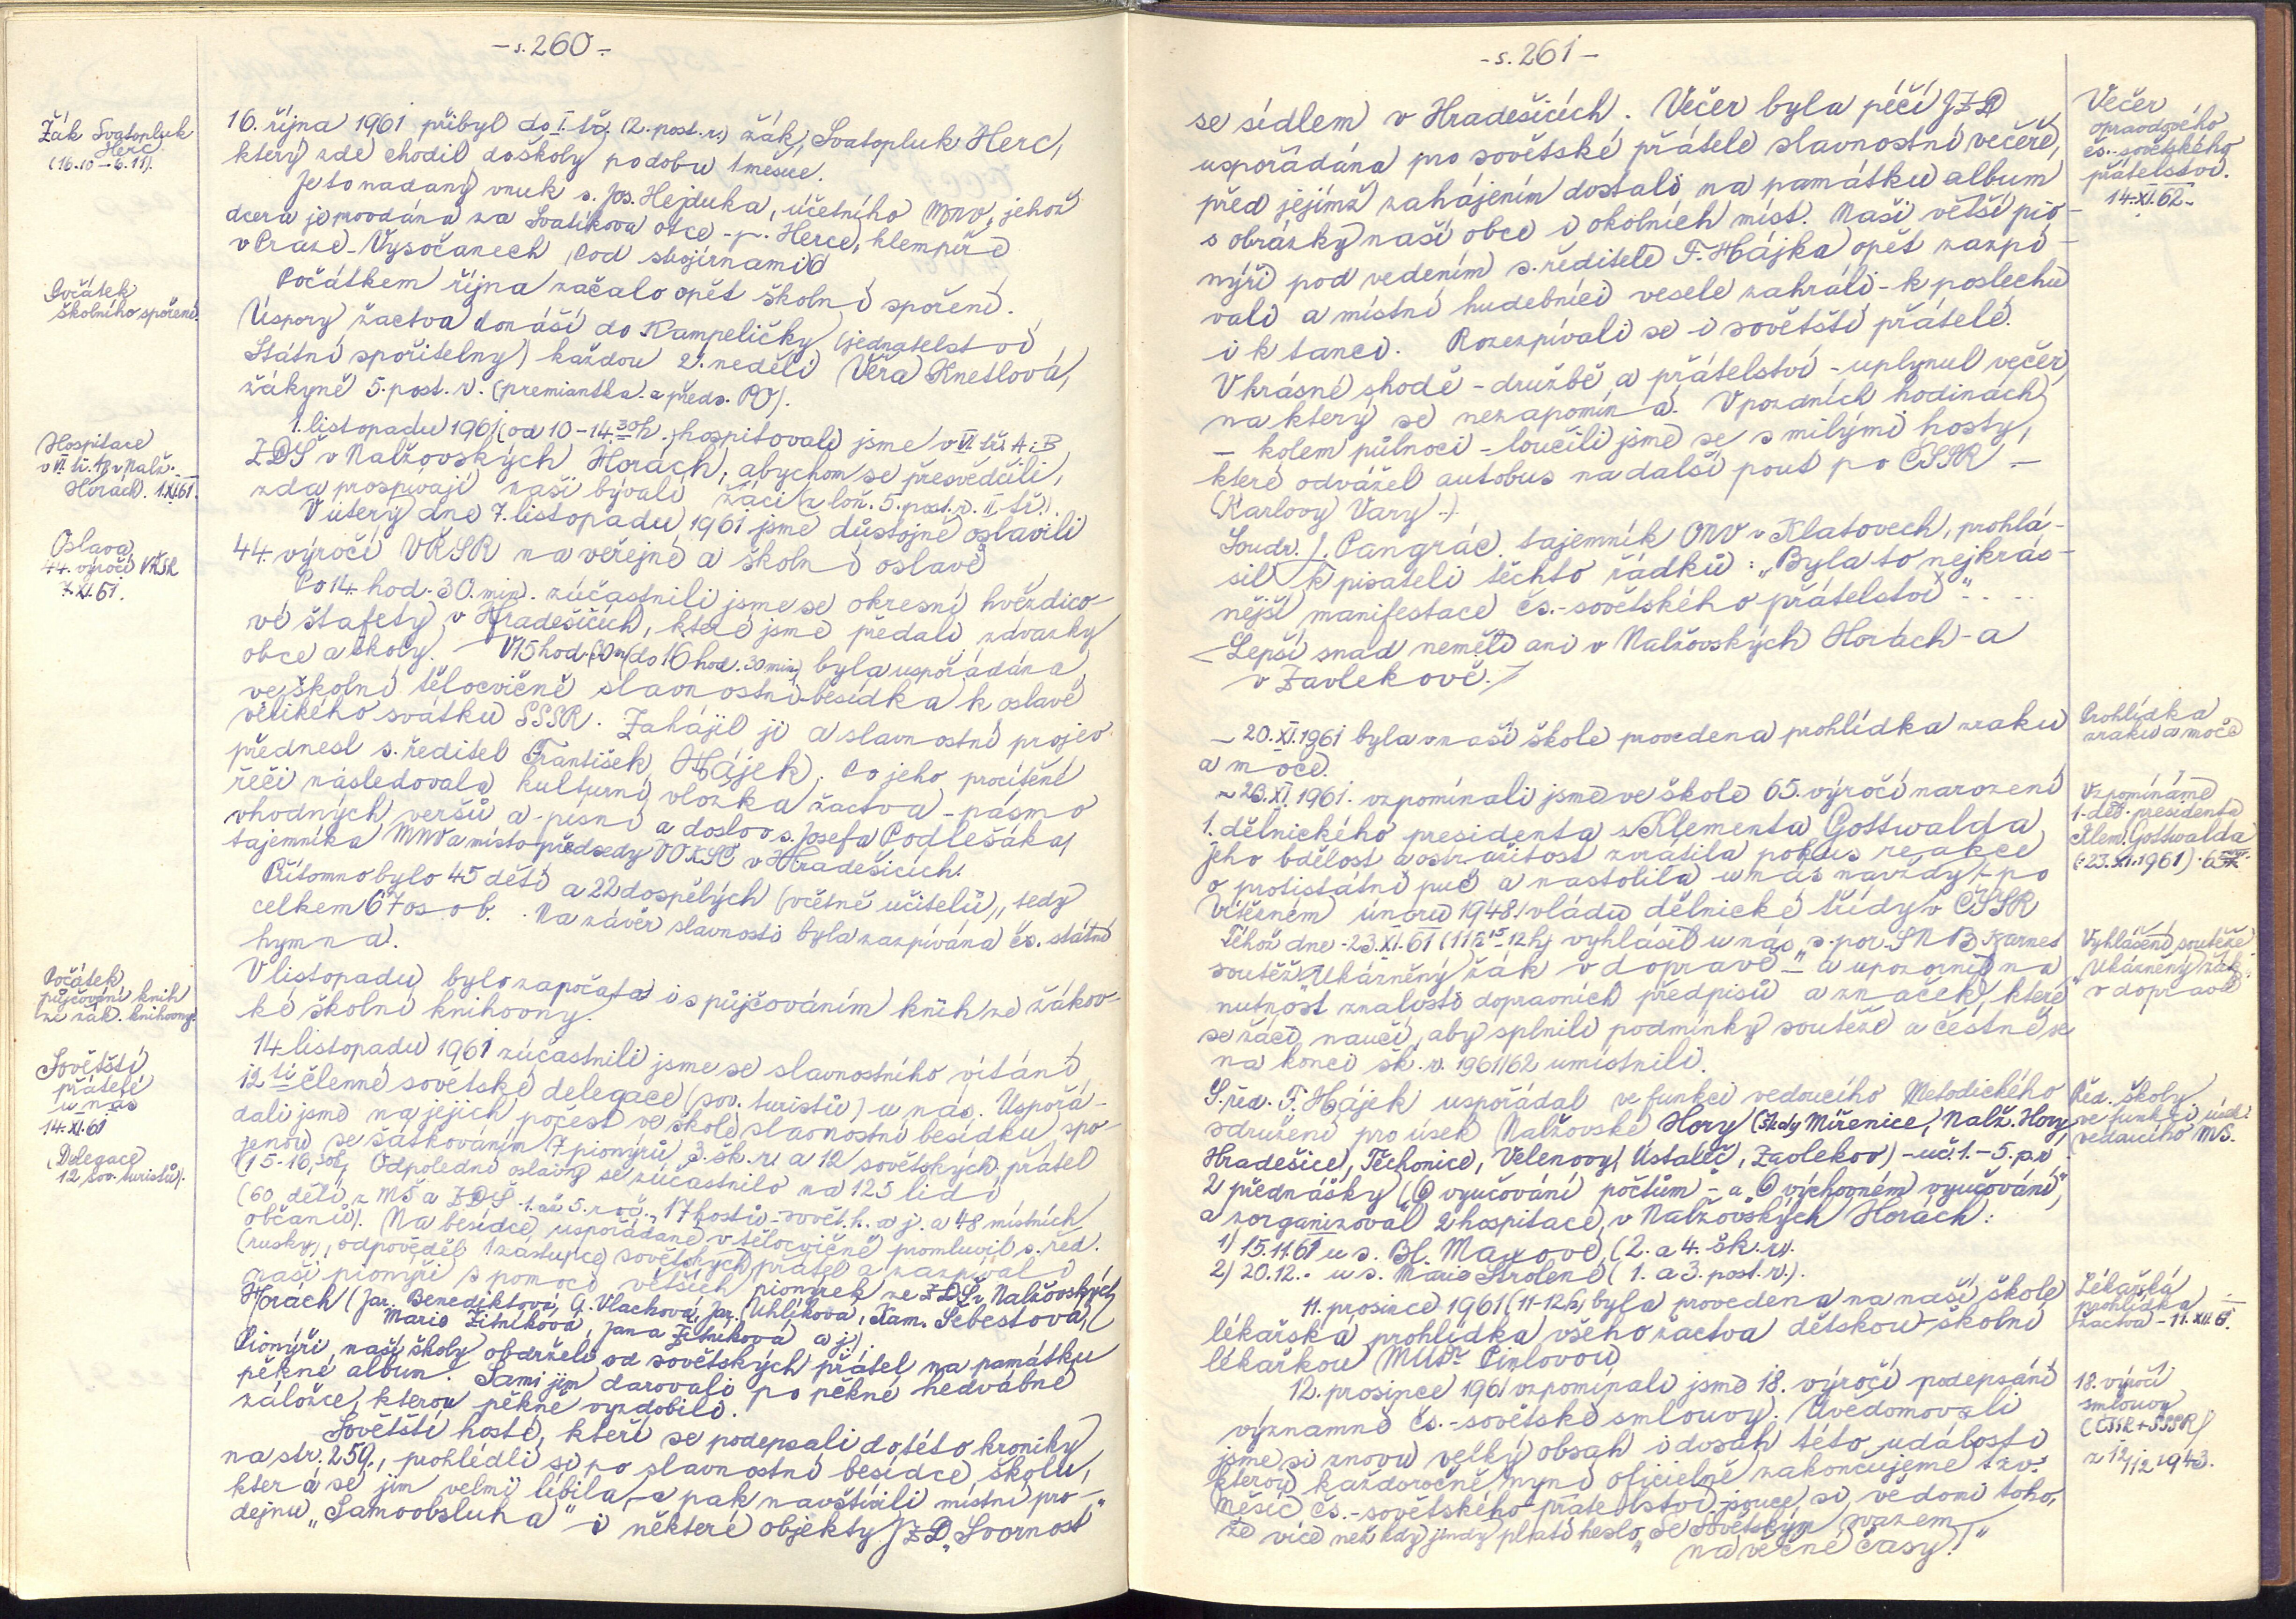 - s. 260 -
Žák Svatopluk
Herc
(16.10 - 6.11).
16. října 1961 přibyl do I. tř. (2. post. r.) žák, Svatopluk Herc,
který zde chodil do školy po dobu 1 měsíce.
Je to nadaný vnuk s. Jos. Hejduka, účetního MNV, jehož
dcera je provdána za Svatíkova otce - p. Herce, klempíře
v Praze - Vysočanech, Pod strojírnami 6
Počátek
školního spoření.
Počátkem října začalo opět školní spoření.
Úspory žactva donáší do Kampeličky (jednatelství
Státní spořitelny) každou 2. neděli Věra Knetlová,
žákyně 5. post. r. (premiantka a předs. PO).
Hospitace
v VI. tř. AB v Nalž.
Horách. 1.XI.61.
1. listopadu 1961 (od 10 - 14.30 h.) hospitovali jsme v VI. tř. A i B
ZDŠ v Nalžovských Horách, abychom se přesvědčili,
zda prospívají naši bývalí žáci (z loň. 5. post. r. II. tř.).
Oslava
44. výročí VŘSR
7.XI.61.
V úterý dne 7. listopadu 1961 jsme důstojně oslavili
44. výročí VŘSR na veřejné a školní oslavě
Po 14. hod. 30. min. zúčastnili jsme se okresní hvězdico-
vé štafety v Hradešicích, které jsme předali závazky
obce a školy. - V 15 hod. (do 16 hod. 30 min.) byla uspořádána
ve školní tělocvičně slavnostní besídka k oslavě
velikého svátku SSSR. Zahájil ji a slavnostní projev
přednesl s. ředitel František Hájek. Po jeho procítěné
řeči následovala kulturní vložka žactva - pásmo
vhodných veršů a písní a doslov s. Josefa Podlešáka,
tajemníka MNV a místopředsedy VO KSČ v Hradešicích.
Přítomno bylo 45 dětí a 22 dospělých (včetně učitelů), tedy
celkem 67 osob. Na závěr slavnosti byla zazpívána čs. státní
hymna.
Počátek
půjčování knih
ze žák. knihovny.
V listopadu bylo započato i s půjčováním knih ze žákov-
ké školní knihovny.
Sovětští
přátelé
u nás
14.XI.61
(Delegace
12 sov. turistů).
14. listopadu 1961 zúčastnili jsme se slavnostního vítání
12 ti členné sovětské delegace (sov. turistů) u nás. Uspořá-
dali jsme na jejich počest ve škole slavnostní besídku, spo-
jenou se šátkováním 7 pionýrů 3. šk. r. a 12 sovětských přátel
(15 - 16,30 h). Odpolední oslavy se zúčastnilo na 125 lidí
(60 dětí z MŠ a ZDŠ - 1. až 5. roč., 17 hostů - sovět. h. a j. a 48 místních
občanů). Na besídce, uspořádané v tělocvičně promluvil s. řed.
(rusky), odpověděl 1 zástupce sovětských přátel a zazpívali
naši pionýři s pomocí větších pionýrek ze ZDŠ v Nalžovských
Horách (Jar. Benediktová, A. Vlachová, Jar. Uhlíková, Kam. Šebestová,
Marie Žitníková, Jana Žitníková a j.).
Pionýři naší školy obdrželi od sovětských přátel na památku
pěkné album. Sami jim darovali po pěkné hedvábné
záložce, kterou pěkně vyzdobili.
Sovětští hosté, kteří se podepsali do této kroniky
na str. 259., prohlédli si po slavnostní besídce školu,
která se jim velmi líbila, a pak navštívili místní pro-
dejnu „Samoobsluha“ i některé objekty JZD „Svornost“
- s. 261 -
se sídlem v Hradešicích. Večer byla péčí JZD
uspořádána pro sovětské přátele slavnostní večeře,
před jejímž zahájením dostali na památku album
s obrázky naší obce i okolních míst. Naši větší pio-
nýři pod vedením s. ředitele F. Hájka opět zazpí-
vali a místní hudebníci vesele zahráli - k poslechu
i k tanci. Rozezpívali se i sovětští přátelé.
V krásné shodě - družbě a přátelství - uplynul večer,
na který se nezapomíná. V pozdních hodinách
- kolem půlnoci - loučili jsme se s milými hosty,
které odvážel autobus na další pouť po ČSSR -
(Karlovy Vary).
Soudr. J. Pangrác, tajemník ONV v Klatovech, prohlá-
sil k pisateli těchto řádků: „Byla to nejkrás-
nější manifestace čs.-sovětského přátelství“ - . . .
Lepší snad neměli ani v Nalžovských Horách - a
v Zavlekově.
Večer
opravdového
čs.-sovětského
přátelství.
14.XI.62.
- 20.XI.1961 byla v naší škole provedena prohlídka zraku
a moče.
Prohlídka
zraku a moče
- 23.XI.1961. vzpomínali jsme ve škole 65. výročí narození
1. dělnického presidenta s. Klementa Gottwalda,
Jeho bdělost a ostražitost zvrátila pokus reakce
o protistátní puč a nastolila u nás navždy (po
Vítězném únoru 1948) vládu dělnické třídy v ČSSR
Vzpomínáme
1. děl. presidenta
Klem. Gottwalda
(23.XI.1961)
Téhož dne - 23.XI.61 (11.15 - 12 h) vyhlásil u nás s. por. SNB Karnet
soutěž „Ukázněný žák v dopravě“ a upozornil na
nutnost znalosti dopravních předpisů a značek, které
se žáci naučí, aby splnili podmínky soutěže a čestně se
na konci šk. r. 1961/62 umístnili.
Vyhlášení soutěže
„Ukázněný žák
v dopravě“
S. řed. F. Hájek uspořádal ve funkci vedoucího Metodického
sdružení pro úsek Nalžovské Hory (školy Miřenice, Nalž. Hory,
Hradešice, Těchonice, Velenovy, Ústaleč, Zavlekov) - uč. 1. - 5. p. r.
2 přednášky („O vyučování počtům“ - a „O výchovném vyučování“)
a zorganizoval 2 hospitace v Nalžovských Horách:
1) 15.11.61 u s. Bl. Maxové, (2. a 4. šk. r.).
2) 20.12. - u s. Marie Strolené (1. a 3. post. r.).
Řed. školy
ve funkci
vedoucího MS.
11. prosince 1961 (11 - 12 h) byla provedena na naší škole
lékařská prohlídka všeho žactva dětskou - školní
lékařkou MUDr. Pinlovou
Lékařská
prohlídka
žactva - 11.XII.61
12. prosince 1961 vzpomínali jsme 18. výročí podepsání
významné čs.-sovětské smlouvy. Uvědomovali
jsme si znovu velký obsah i dosah této události
kterou každoročně nyní oficielně zakončujeme tzv.
Měsíc čs.-sovětského přátelství jsouce si vědomi toho,
že více než kdy jindy platí heslo „Se Sovětským svazem
na věčné časy!“
18. výročí
smlouvy
(ČSR + SSSR)
z 12/12 1943.